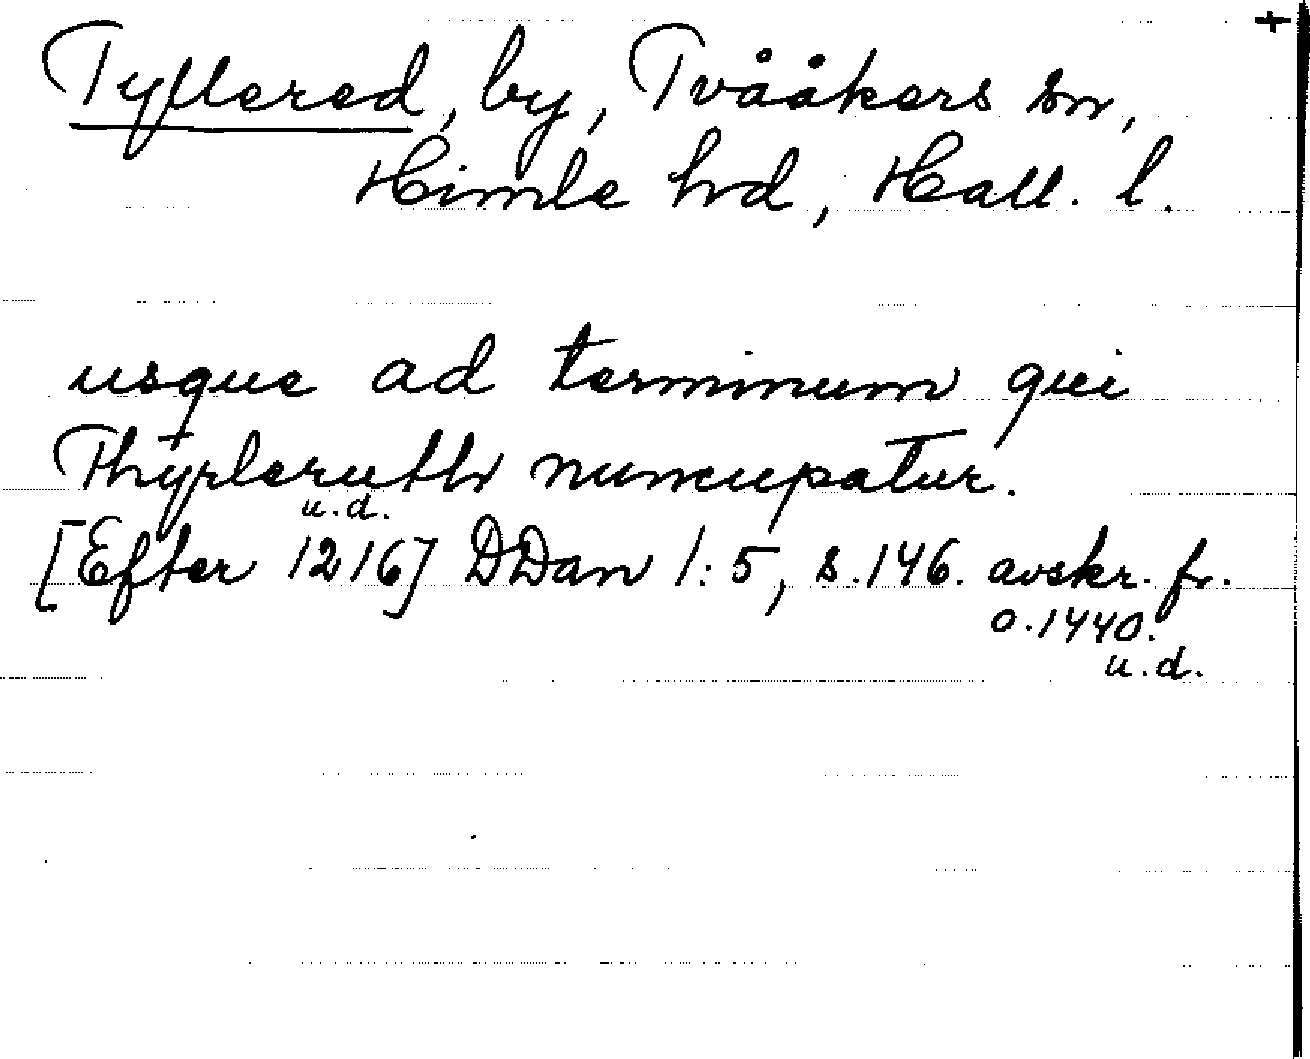 +
Tyllered, by, Tvååkers sn,
Himle hd, Hall. l.
usque ad terminum qui
Thyrleruth nuncupatur.
u.d.
[Efter 1216] DDan 1:5, s.146. avskr. fr.
o.1440.
u.d.